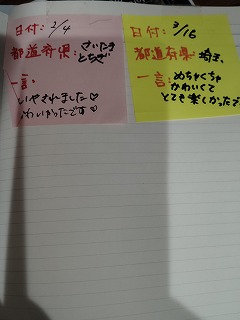 日付: 2/4
都道府県: さいたま
とちぎ
一言:
いやされました♡
かわいかったです♡
日付: 3/16
都道府県: 埼玉
一言: めちゃくちゃ
かわいくて
とても楽しかったで